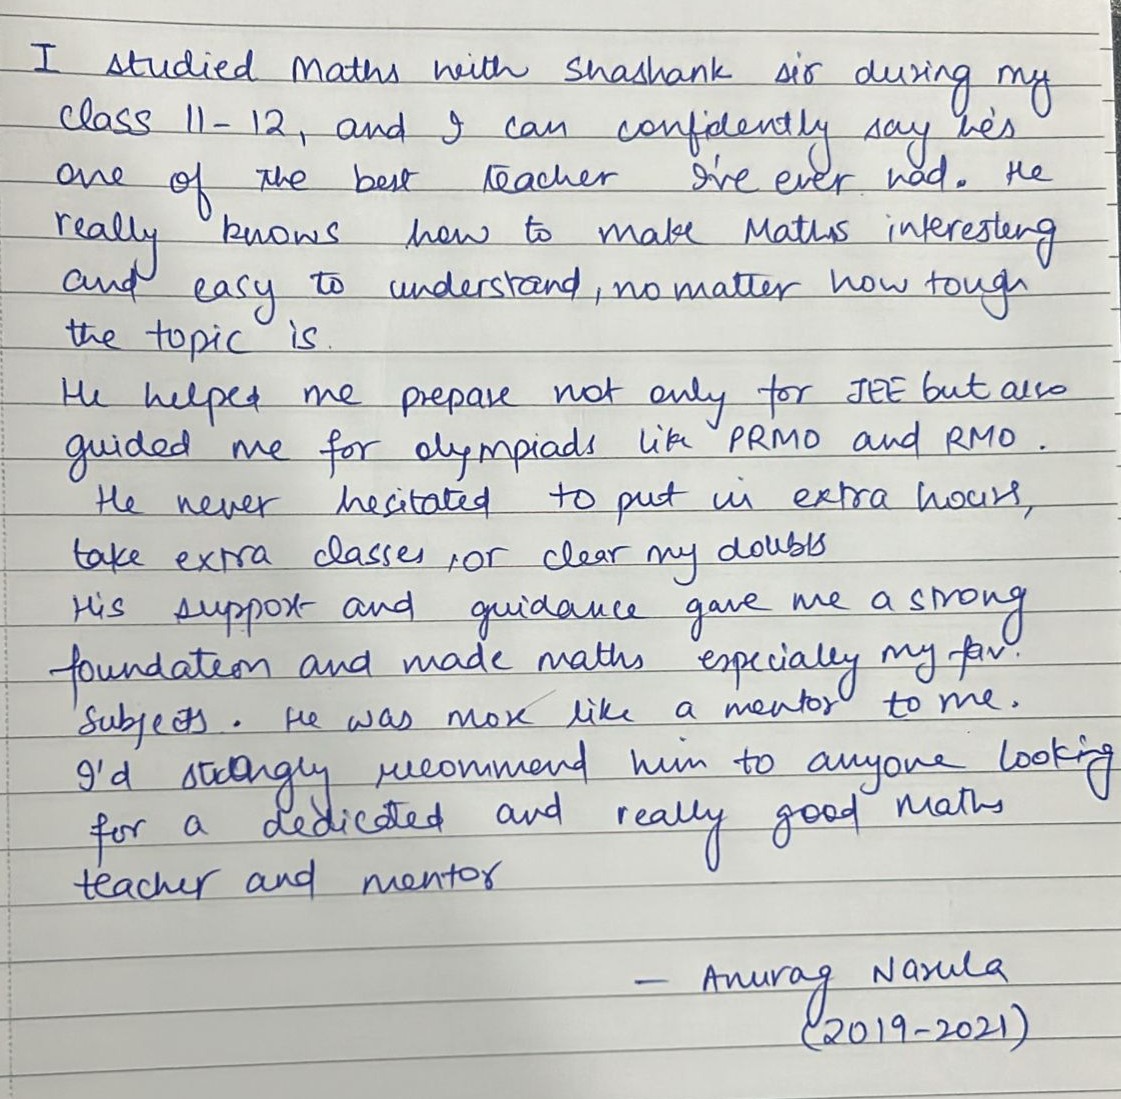 I studied Maths with Shashank sir during my
class 11-12, and I can confidently say he's
one of the best teacher I've ever had. He
really knows how to make Maths interesting
and easy to understand, no matter how tough
the topic is.
He helped me prepare not only for JEE but also
guided me for olympiads like PRMO and RMO.
He never hesitated to put in extra hours,
take extra classes, or clear my doubts
His support and guidance gave me a strong
foundation and made maths especially my fav.
subjects. He was more like a mentor to me.
I'd strongly recommend him to anyone looking
for a dedicated and really good Maths
teacher and mentor
- Anurag Narula
(2019-2021)